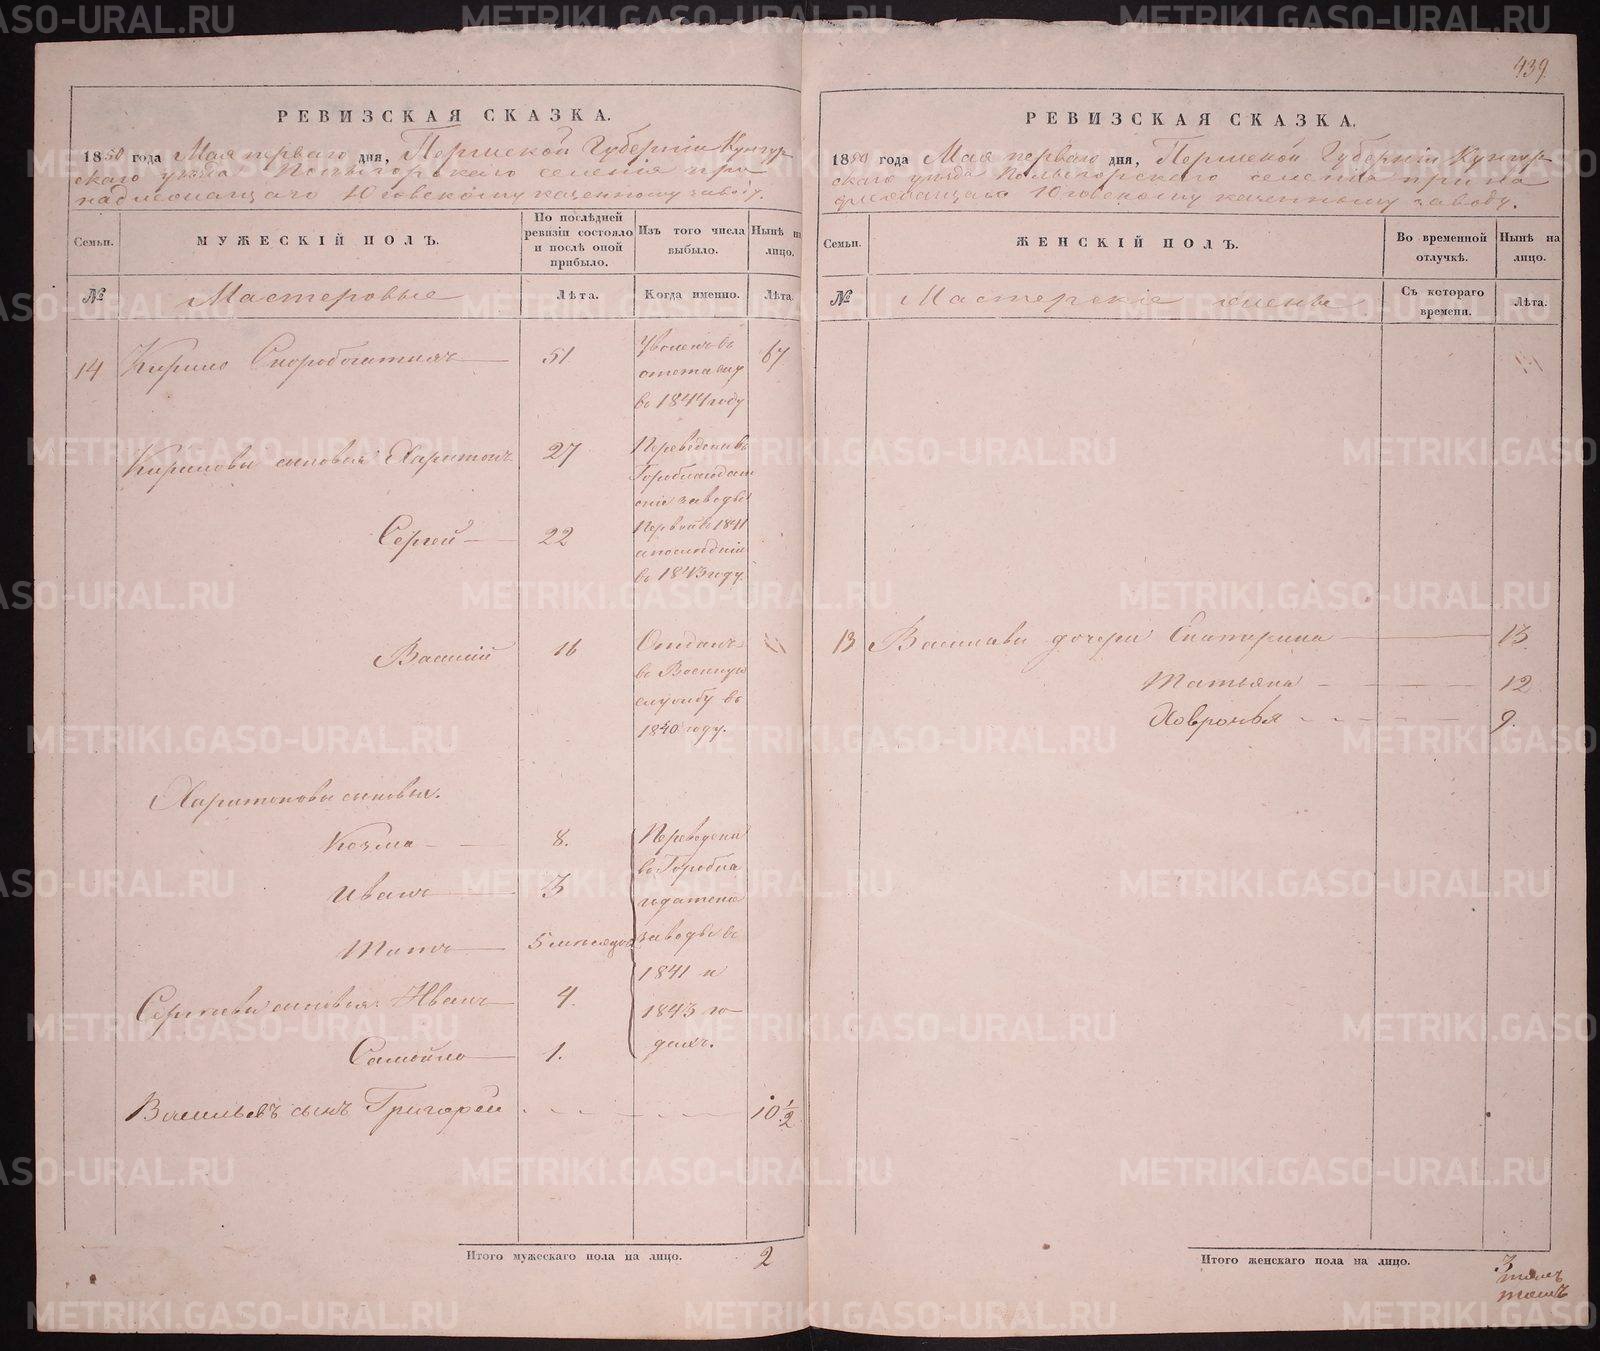 METRIKI.GASO-URAL.RU
439
РЕВИЗСКАЯ СКАЗКА.
1850 года Мая перваго дня, Пермской Губернiи Кунгур
скаго уѣзда селенiя при
надлежащаго Юговскому казенному заводу.
Семьи.
МУЖЕСКIЙ ПОЛЪ.
По послѣдней ревизiи состояло и послѣ оной прибыло.
Изъ того числа выбыло.
Нынѣ на лицо.
№
Мастеровые
Лѣта.
Когда именно.
Лѣта.
14 Кирило Скоробогатыхъ 51 Уволенъ въ 67
отставку
въ 1844 году
Кириловы сыновья Харитонъ 27 Переведены въ
Гороблагодат
скiе заводы
Сергей 22 Первой въ 1841
а последнiй
въ 1843 году.
Василiй 16 Отданъ
въ Военную
службу въ
1840 году.
Харитоновы сыновья.
Козма 8. Переведены
въ Горобла
Иванъ 3 годатскiе
5 месяцов заводы въ
1841 и
Сергеевы сыновья Иванъ 4. 1843 го
Самойло 1. дахъ.
Васильевъ сынъ Григорей 10 1/2
Итого мужескаго пола на лицо. 2
РЕВИЗСКАЯ СКАЗКА.
1850 года Мая перваго дня, Пермской Губернiи Кунгур
скаго уѣзда селенiя прина
длежащаго Юговскому казенному заводу.
Семьи.
ЖЕНСКIЙ ПОЛЪ.
Во временной отлучкѣ.
Нынѣ на лицо.
№
Мастерскiе жены
Съ котораго времени.
Лѣта.
13 Василiавы дочери Екатерина 13
Татьяна 12
Ховронья 9.
Итого женскаго пола на лицо. 3